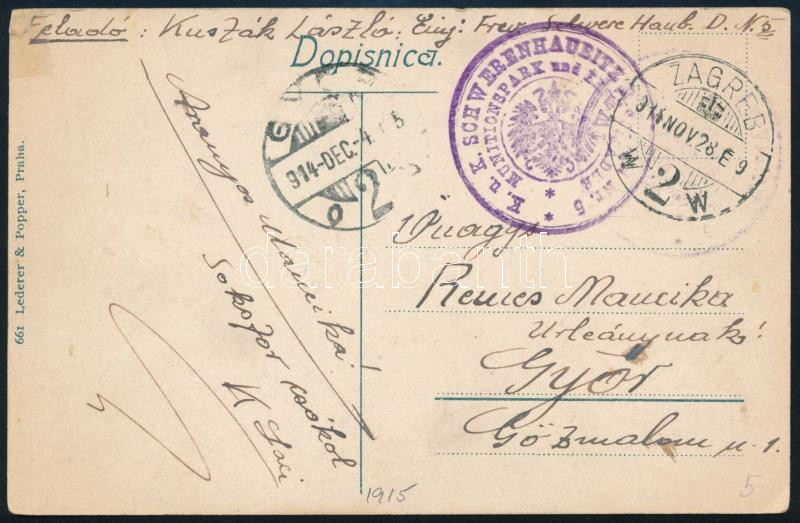 Feladó: Kuszák László, Einj. Frew. Schwere Haub. D. N. 5
Dopisnica.
K. u. K. SCHWERENHAUBITZ
MUNITIONSPARK und
Nr. 5
ZAGREB
914 NOV. 28. E 9
2
914-DEC.-4.
2
Aranyos Mancika!
Sokszor csókol
K Laci
Remes Mancika
Urleánynak!
Győr
Gőzmalom u. 1.
661 Lederer & Popper, Praha.
1915
5
darabanth